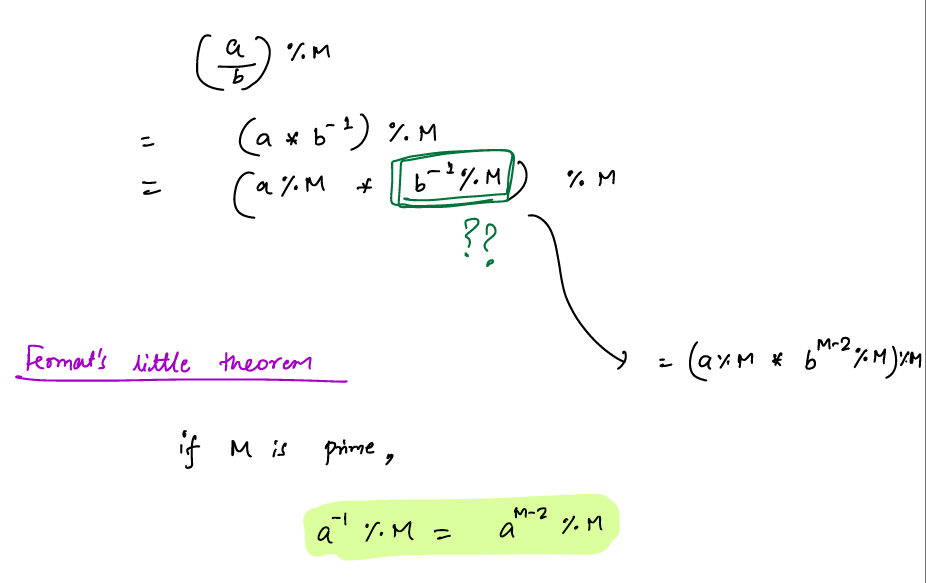 (a/b) % M
= (a * b⁻¹) % M
= (a % M * b⁻¹ % M) % M
??
= (a % M * b^(M-2) % M) % M
Fermat's little theorem
if M is prime,
a⁻¹ % M = a^(M-2) % M